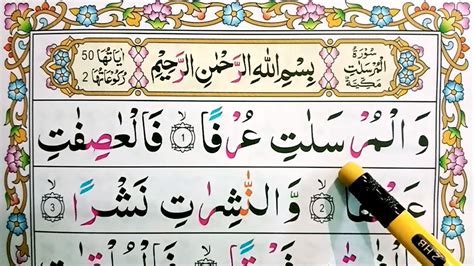 سُوْرَةُ
الْمُرْسَلٰتِ
مَكِّيَّةٌ
بِسْمِ اللّٰهِ الرَّحْمٰنِ الرَّحِيْمِ
اٰيَاتُهَا 50
رُكُوْعَاتُهَا 2
وَالْمُرْسَلٰتِ عُرْفًا ۙ ١ فَالْعٰصِفٰتِ
ۙ ٢ وَّالنّٰشِرٰتِ نَشْرًا ۙ ٣
2 HB